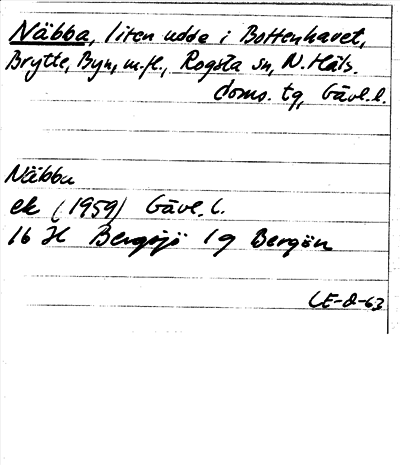 Näbba, liten udde i Bottenhavet,
Brytte, Byn, m.fl., Rogsta sn, N. Häls.
doms. tg, Gävl. l.
Näbba
ek (1959) Gävl. l.
16 H Bergsjö 1g Bergön
LE-D-63